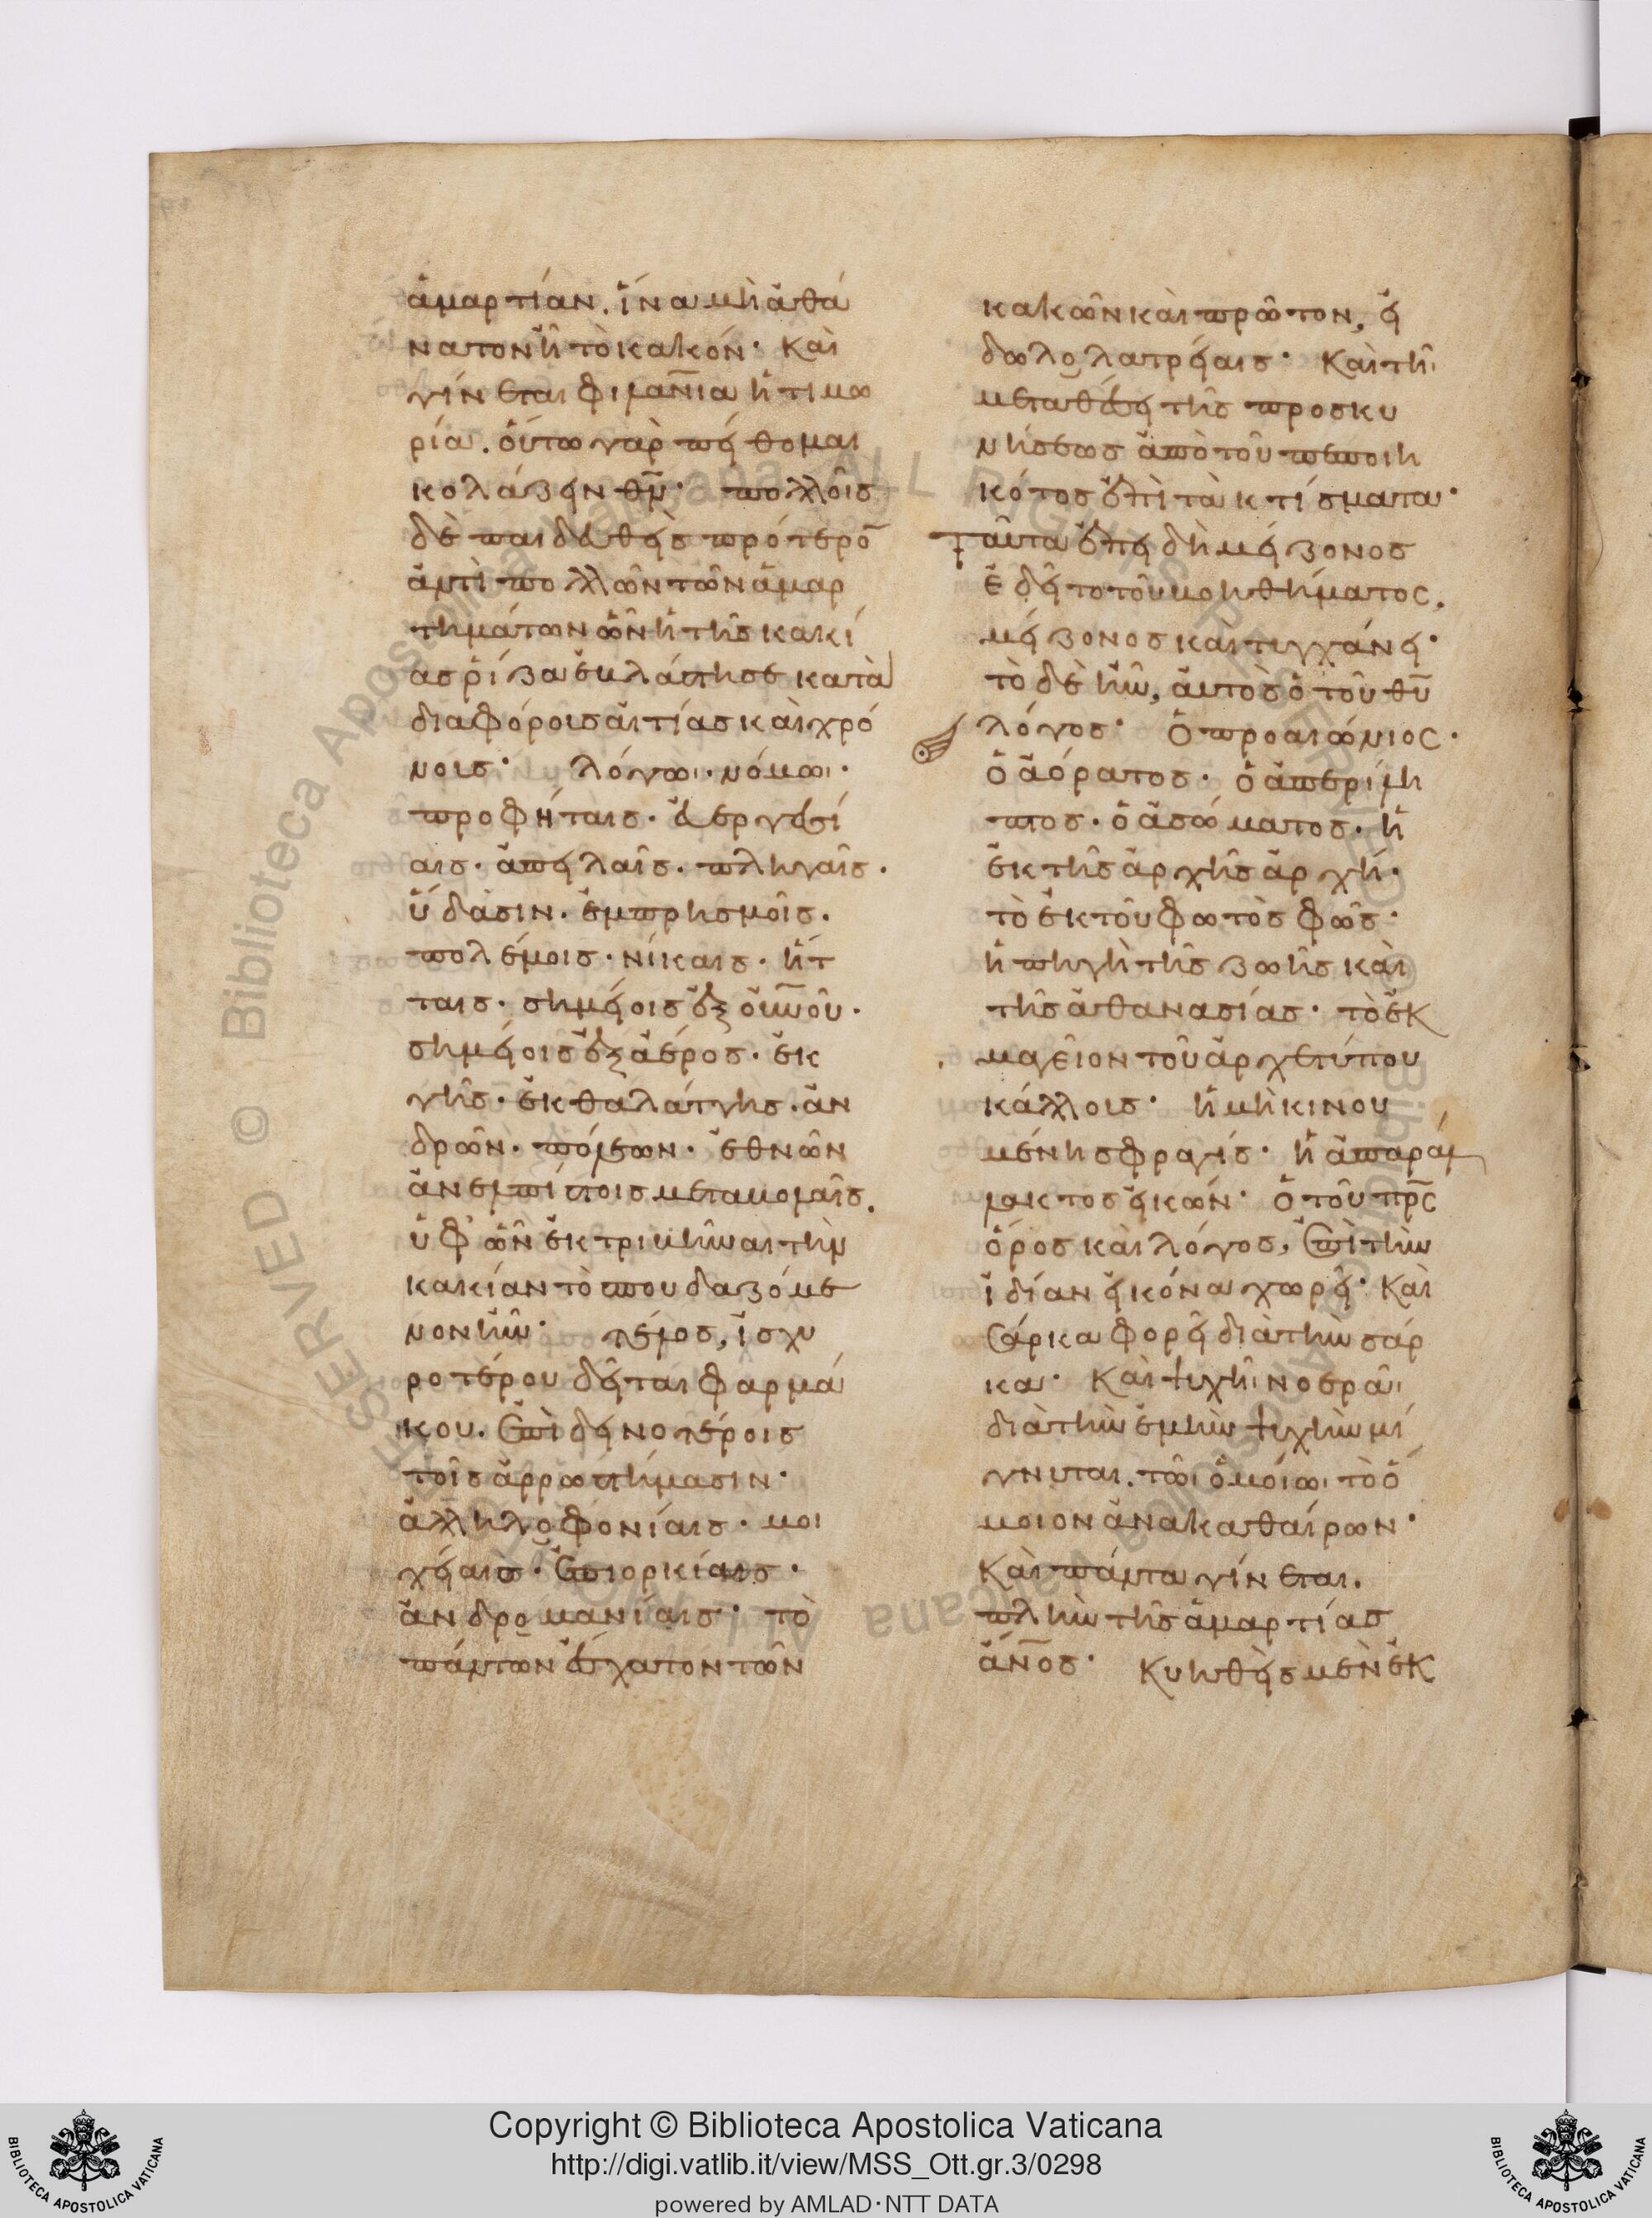 ἁμαρτίαν. ἵνα μὴ ἀθά
νατον ἦ τὸ κακόν· Καὶ
γίνεται φιλαν̅ια ἡ τιμω
ρία. οὕτω γὰρ πείθομαι
κολάζειν θν̅· πολλοῖς
δὲ παιδευθεὶς πρότερο̅
ἀντὶ πολλῶν τῶν ἁμαρ
τημάτων ὧν ἡ τῆς κακί
ας ῥίζα ἐβλάστησε κατὰ
διαφόροις αἰτίας καὶ χρό
νοις· λόγωι· νόμωι·
προφήταις· εὐεργεσί
αις· ἀπειλαῖς· πληγαῖς·
ὕδασιν· ἐμπρησμοῖς·
πολέμοις· νίκαις· ἥτ
ταις· σημείοις ἐξ οὐν̅οῦ·
σημείοις ἐξ ἀέρος· ἐκ
γῆς· ἐκ θαλάττης· ἀν
δρῶν· πόλεων· ἐθνῶν
ἀνελπίστοις μεταβολαῖς.
ὑφ' ὧν ἐκτριβῆναι τὴν
κακίαν τὸ σπουδαζόμε
νον ἦν· τέλος, ἰσχυ
ροτέρου δεῖται φαρμά
κου. ἐπὶ δεινοτέροις
τοῖς ἀρρωστήμασιν·
ἀλληλοφονίαις· μοι
χείαις· ἐπιορκίαις·
ἀνδρομανίαις· τὸ
πάντων ἔσχατον τῶν
κακῶν καὶ πρῶτον, εἰ
δωλολατρείαις· Καὶ τῆι
μεταθέσει τῆς προσκυ
νήσεως ἀπὸ τοῦ πεποιη
κότος ἐπὶ τὰ κτίσματα·
Ταῦτα ἐπεὶ δὴ μείζονος
ἐδεῖτο τοῦ βοηθήματος,
μείζονος καὶ τυγχάνει·
τὸ δὲ ἦν, αὐτὸς ὁ τοῦ θυ̅
λόγος· Ὁ προαιώνιος·
ὁ ἀόρατος· ὁ ἀπερίλη
πτος· ὁ ἀσώματος· ἡ
ἐκ τῆς ἀρχῆς ἀρχή·
τὸ ἐκ τοῦ φωτὸς φῶς·
ἡ πηγὴ τῆς ζωῆς καὶ
τῆς ἀθανασίας· τὸ ἐκ
μαγεῖον τοῦ ἀρχετύπου
κάλλοις· ἡ μὴ κινου
μένη σφραγίς· ἡ ἀπαράλ
λακτος εἰκών· ὁ τοῦ πρ̅ς
ὅρος καὶ λόγος, ἐπὶ τὴν
ἰδίαν εἰκόνα χωρεῖ· Καὶ
σάρκα φορεῖ διὰ τὴν σάρ
κα· Καὶ ψυχῆι νοερᾶι
διὰ τὴν ἐμὴν ψυχὴν μί
γνυται. τῶι ὁμοίωι τὸ ὅ
μοιον ἀνακαθαίρων·
Καὶ πάντα γίνεται.
πλὴν τῆς ἁμαρτίας
ἄν̅ος· Κυηθεὶς μὲν ἐκ
Copyright © Biblioteca Apostolica Vaticana
http://digi.vatlib.it/view/MSS_Ott.gr.3/0298
powered by AMLAD·NTT DATA